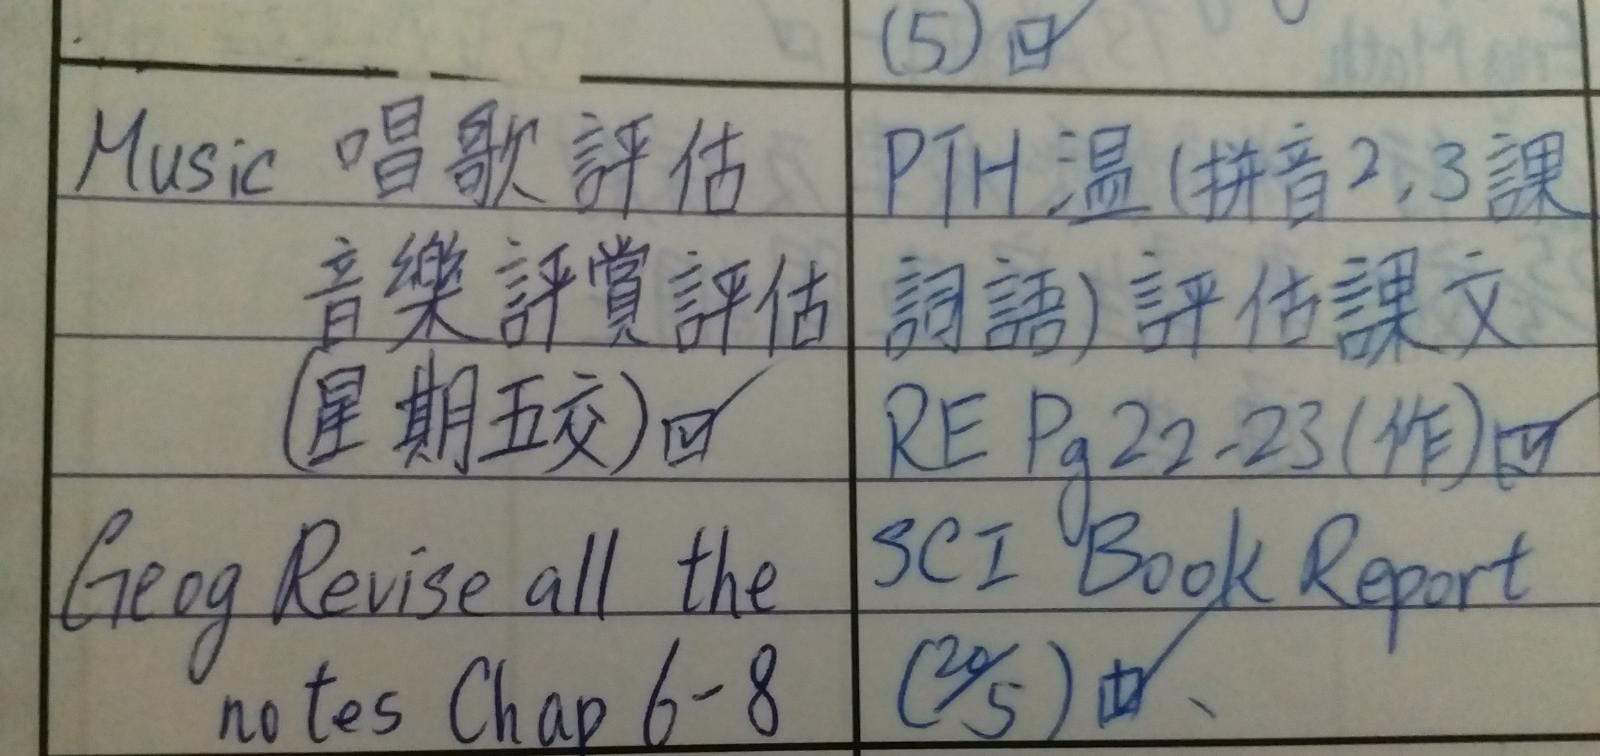 (5) ☑
Music 唱歌評估
音樂評賞評估
(星期五交) ☑
Geog Revise all the
notes Chap 6-8
PTH 温 (拼音2,3課
詞語) 評估課文
RE Pg 22-23 (作) ☑
SCI Book Report
(20/5) ☑